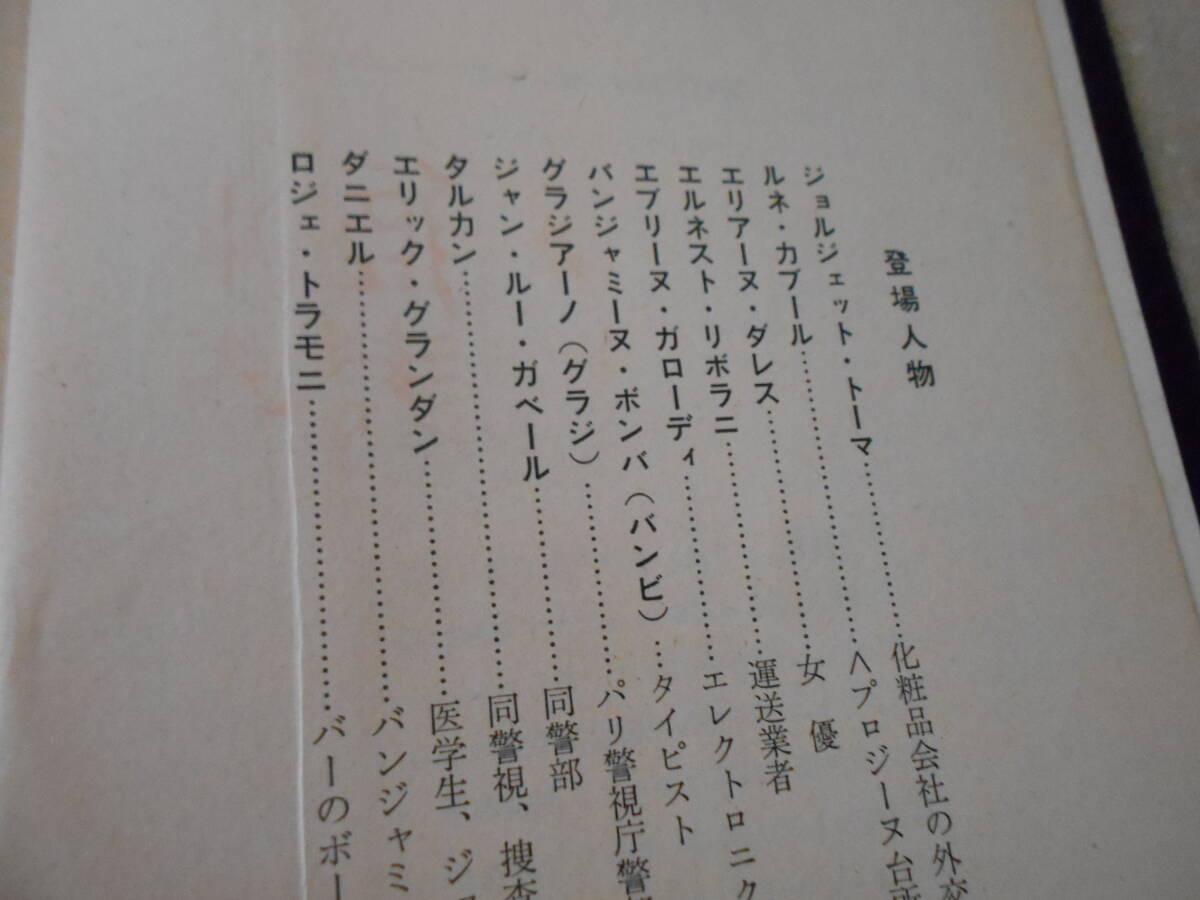 登場人物
ジョルジェット・トーマ……………………化粧品会社の外交
ルネ・カブール……………………………〈プロジーヌ台所
エリアーヌ・ダレス………………………女優
エルネスト・リボラニ……………………運送業者
エブリーヌ・ガローディ…………………エレクトロニク
バンジャミーヌ・ボンバ（バンビ）……タイピスト
グラジアーノ（グラジ）…………………パリ警視庁警
ジャン・ルー・ガベール…………………同警部
タルカン……………………………………同警視、捜査
エリック・グランダン……………………医学生、ジ
ダニエル……………………………………バンジャミ
ロジェ・トラモニ…………………………バーのボー